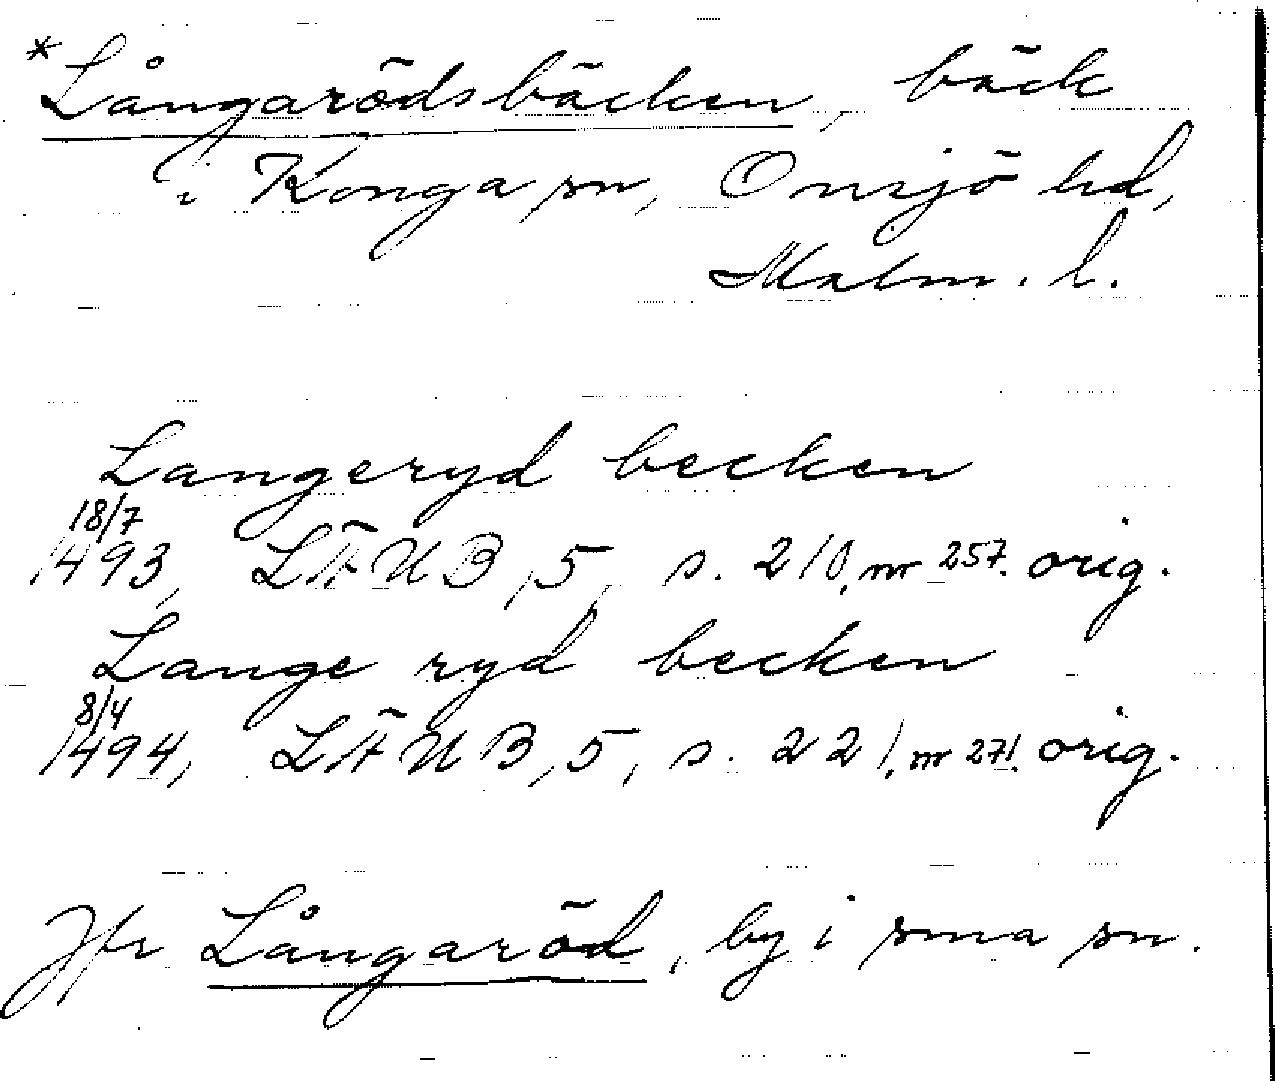 *Långarödsbäcken, bäck
i Konga sn, Onsjö hd,
Malm. l.
Langeryd becken
18/7
1493, LÄUB, 5, s. 210, nr 257. orig.
Lange ryd becken
8/4
1494, LÄUB, 5, s. 221, nr 271. orig.
Jfr Långaröd, by i sma sn.